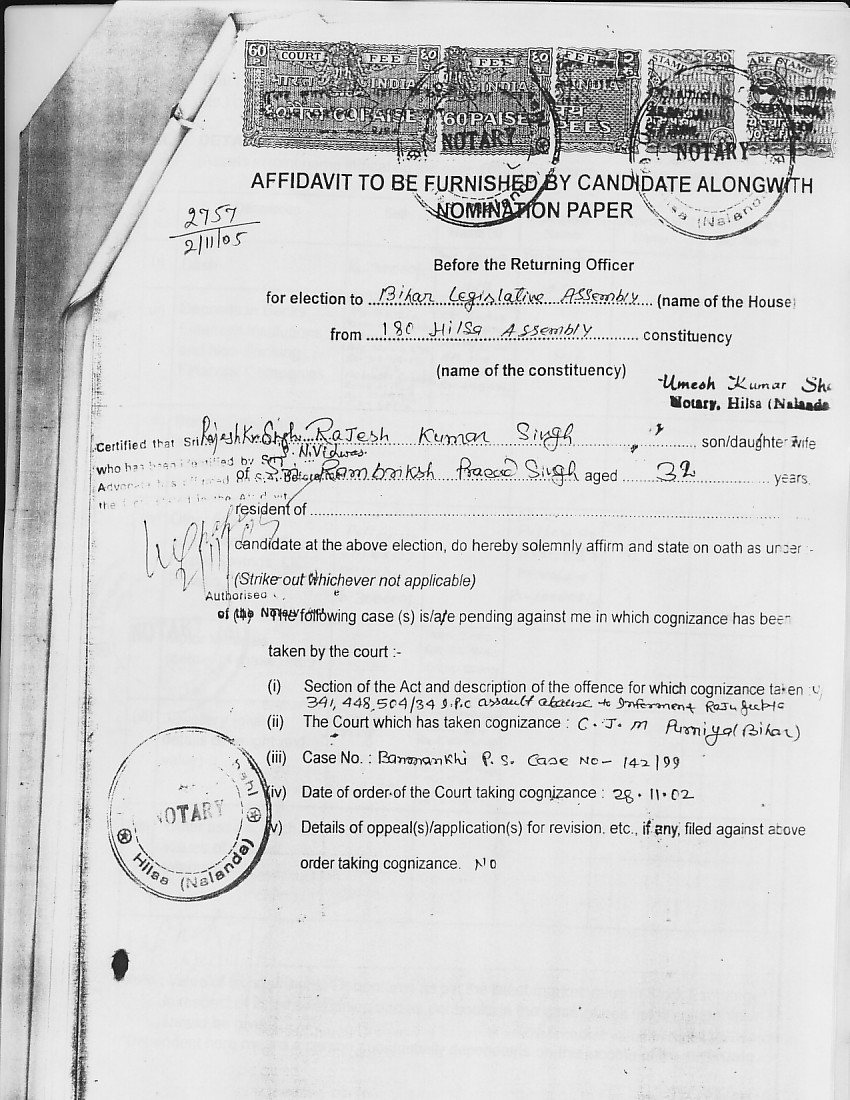 60 COURT FEE 60
60 FEE 60
FEE
STAMP 2.50
ARE STAMP
भारत INDIA
INDIA
INDIA
60 PAISE
60 PAISE
NOTARY
NOTARY
AFFIDAVIT TO BE FURNISHED BY CANDIDATE ALONGWITH
NOMINATION PAPER
(Nalanda)
2757
2/11/05
Before the Returning Officer
for election to Bihar Legislative Assembly (name of the House)
from 180 Hilsa Assembly constituency
(name of the constituency)
Umesh Kumar
Notary, Hilsa (Nalanda
Certified that Sri Rajesh Kr. Singh Rajesh Kumar Singh son/daughter/wife
who has been identified by
of Sri Rambriksh Prasad Singh aged 32 years,
resident of
candidate at the above election, do hereby solemnly affirm and state on oath as under :-
(Strike out whichever not applicable)
Authorised
of the
(1) The following case (s) is/are pending against me in which cognizance has been
taken by the court :-
(i) Section of the Act and description of the offence for which cognizance taken :
341, 448, 504/34 I.P.C assault abuse to
(ii) The Court which has taken cognizance : C. J. M Purniya (Bihar)
(iii) Case No. : Banmankhi P. S. Case No- 142/99
(iv) Date of order of the Court taking cognizance : 28.11.02
(v) Details of oppeal(s)/application(s) for revision. etc., if any, filed against above
order taking cognizance. NO
NOTARY
Hilsa (Nalanda)